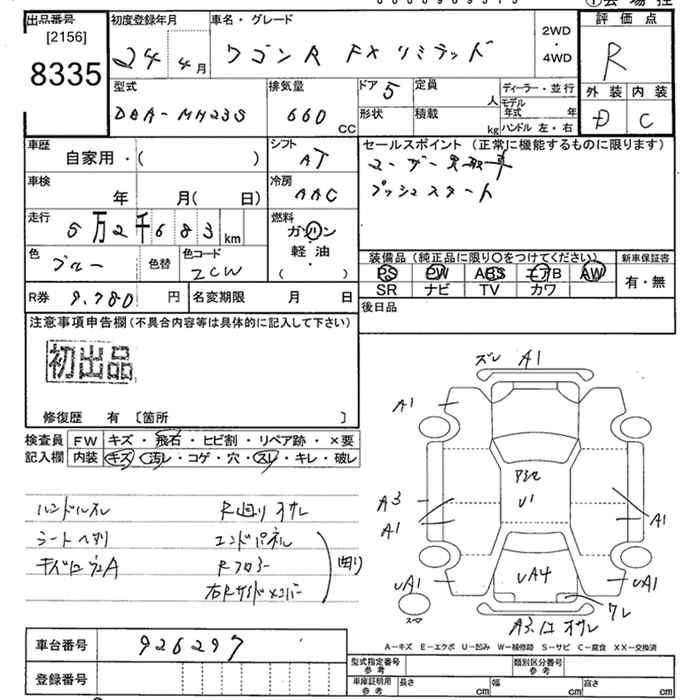 出品番号 初度登録年月 車名・グレード 評価点
[2156]
8335 24 4月 ワゴンR FXリミテッド 2WD・4WD R
外装 内装
D C
型式 排気量 ドア 5 定員 人 ディーラー・並行
DBA-MH23S 660 CC 形状 積載 kg モデル年式 年
ハンドル 左・右
車歴 シフト セールスポイント (正常に機能するものに限ります)
自家用・( ) AT
車検 冷房 プッシュスタート
年 月( 日) AAC
走行 燃料
5万2千683km ガソリン
軽油
( ・ )
色 ブルー 色替 色コード ZCW
装備品 (純正品に限り〇をつけてください) 新車保証書
PS PW ABS エアB AW 有・無
SR ナビ TV カワ
R券 9,780円 名変期限 月 日 後日品
注意事項申告欄(不具合内容等は具体的に記入して下さい)
初出品
修復歴 有 〔箇所 〕
検査員 FW キズ・飛石・ヒビ割・リペア跡・×要
記入欄 内装 キズ・汚レ・コゲ・穴・スレ・キレ・破レ
ハンドルスレ R廻りオサレ
シートヘタリ エンドパネル
Rフロアー 曲り
右Rサイドメンバー
ズレ A1
A1
A3
A1 A1
U1
UA1 UA4 UA1
ワレ
A3 オサレ
車台番号 926297
登録番号
A-キズ E-エクボ U-凹み W-補修跡 S-サビ C-腐食 XX-交換済
型式指定番号 参考 類別区分番号 参考
車庫証明用 参考 長さ cm 幅 cm 高さ cm